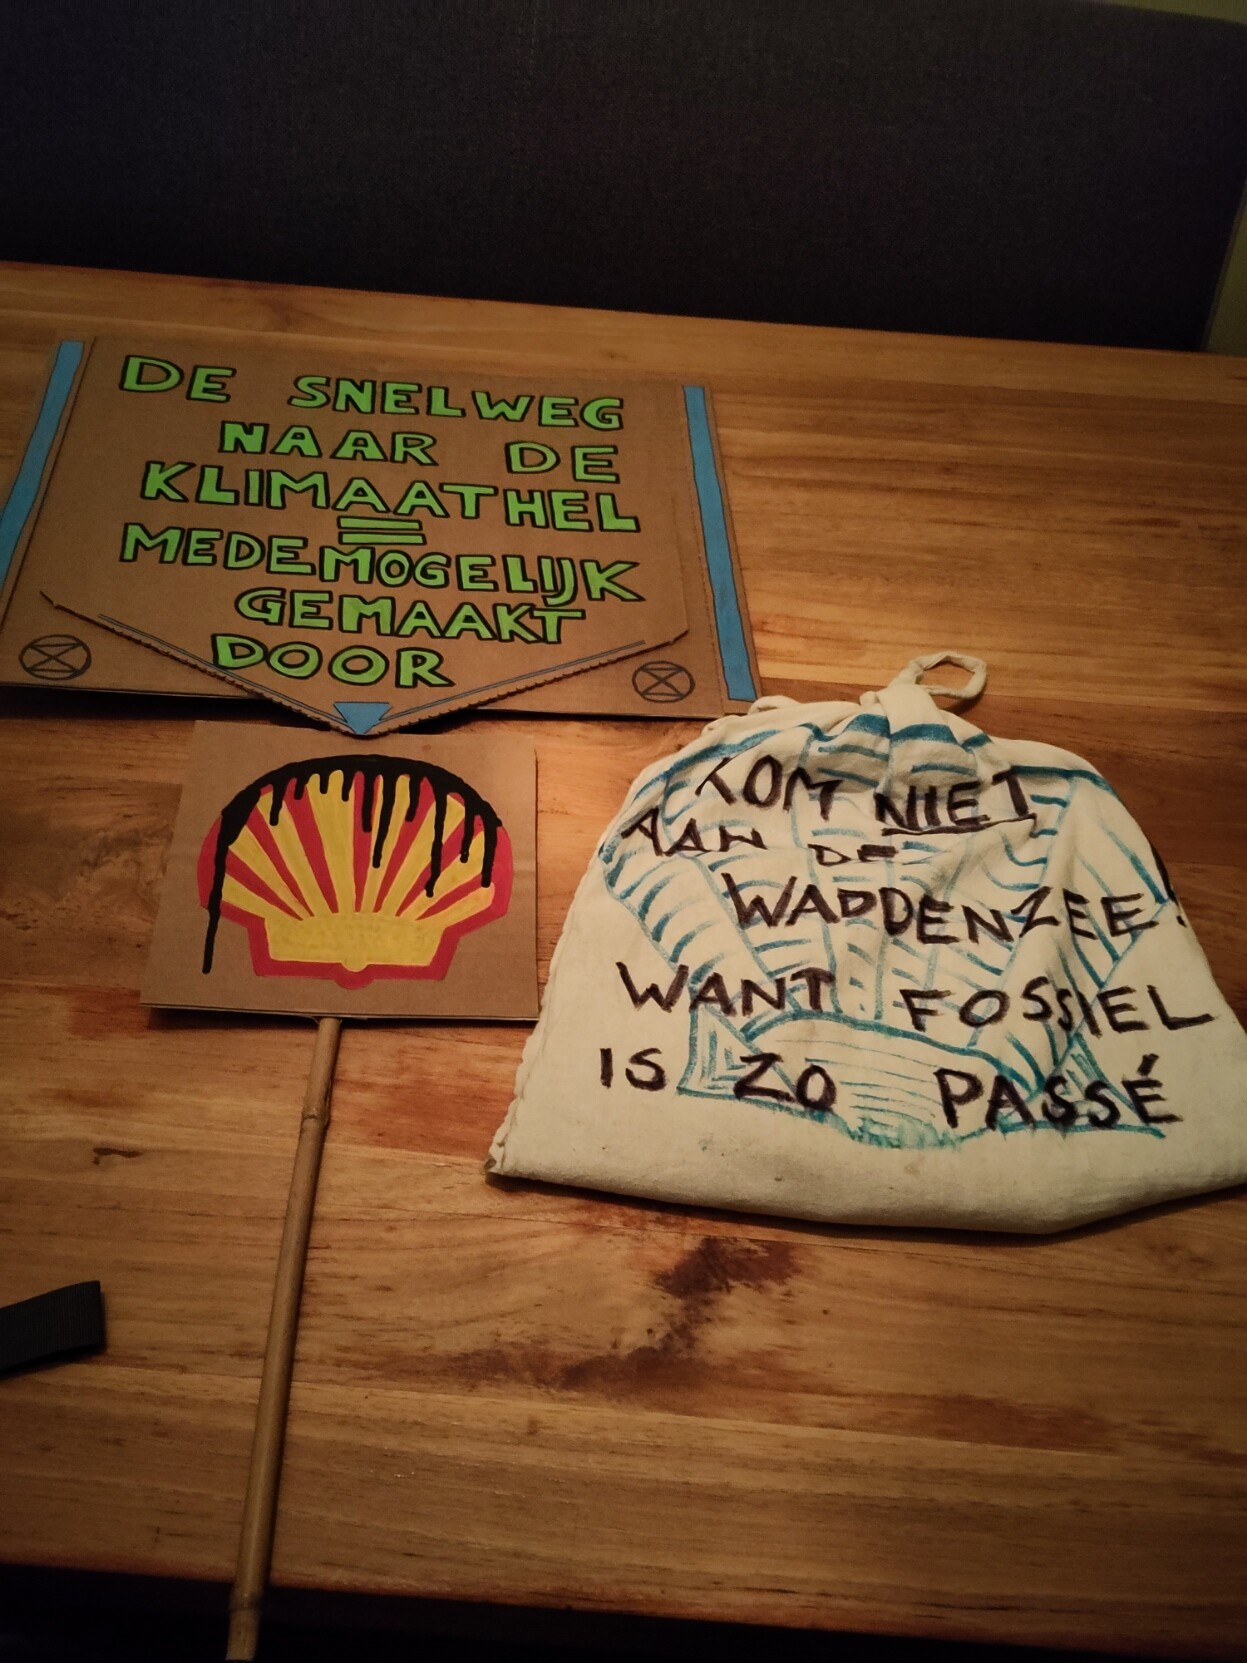 DE SNELWEG
NAAR DE
KLIMAATHEL
=
MEDEMOGELIJK
GEMAAKT
DOOR
KOM NIET
AAN DE
WADDENZEE!
WANT FOSSIEL
IS ZO PASSÉ